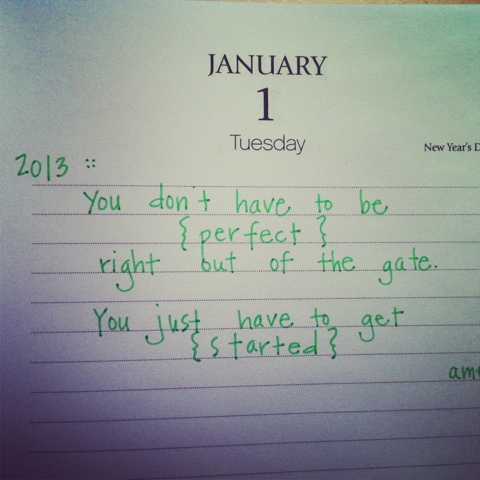 JANUARY
1
Tuesday
New Year's D
2013 ::
You don't have to be
{ perfect }
right out of the gate.
You just have to get
{ started }